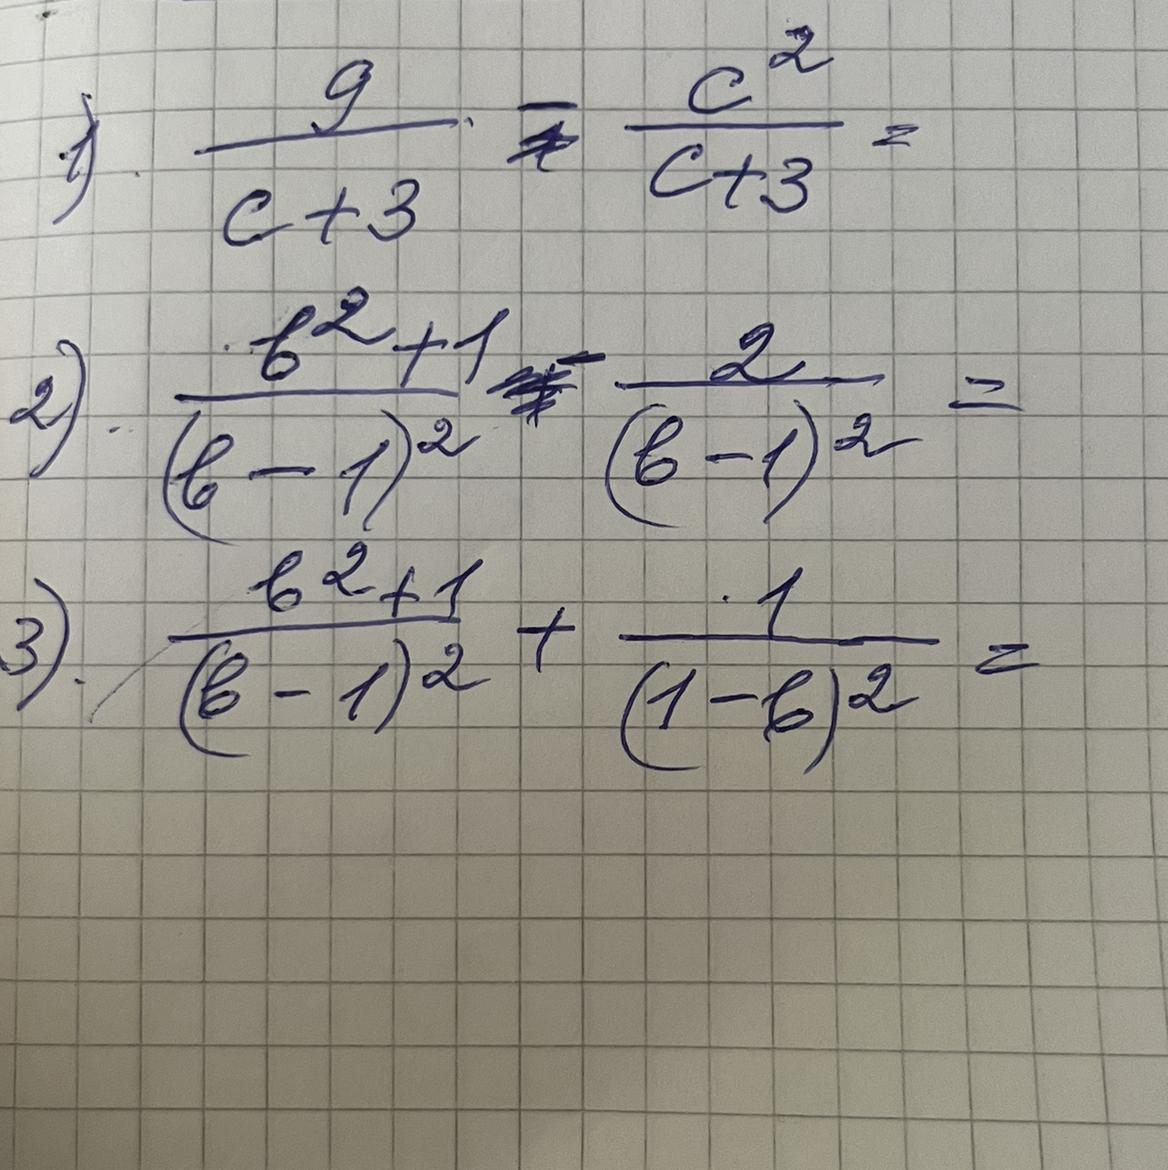 1). 9/(c+3) - c²/(c+3) =
2). (b²+1)/(b-1)² - 2/(b-1)² =
3). (b²+1)/(b-1)² + 1/(1-b)² =